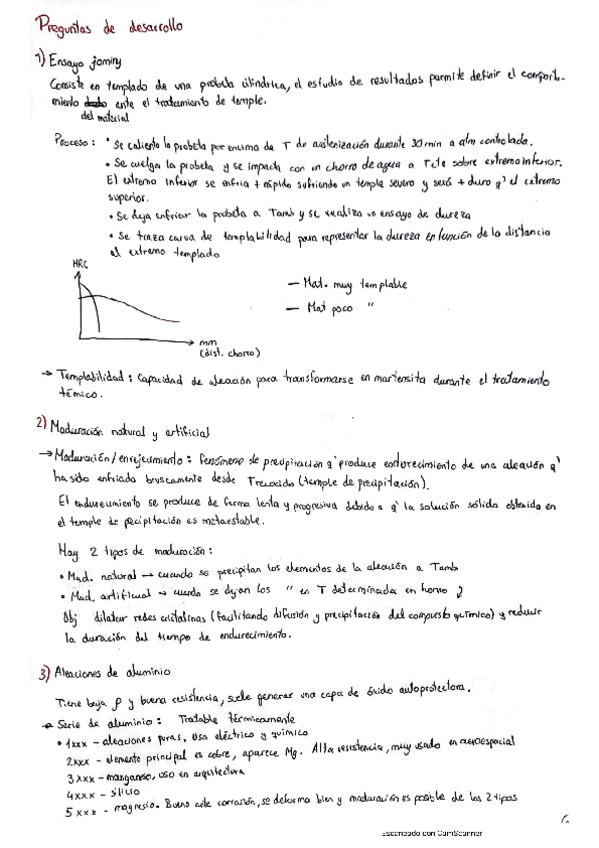 Preguntas de desarrollo
1) Ensayo jominy
Consiste en templado de una probeta cilíndrica, el estudio de resultados permite definir el comporta-
miento ante el tratamiento de temple.
del material
Proceso: • Se calienta la probeta por encima de T de austenización durante 30 min a atm controlada.
• Se cuelga la probeta y se impacta con un chorro de agua a T cte sobre extremo inferior.
El extremo inferior se enfría + rápido sufriendo un temple severo y será + duro q' el extremo
superior.
• Se deja enfriar la probeta a Tamb y se realiza un ensayo de dureza
• Se traza curva de templabilidad para representar la dureza en función de la distancia
al extremo templado
HRC
— Mat. muy templable
— Mat poco "
mm
(dist. chorro)
→ Templabilidad: Capacidad de aleación para transformarse en martensita durante el tratamiento
térmico.
2) Maduración natural y artificial
→ Maduración/envejecimiento: fenómeno de precipitación q' produce endurecimiento de una aleación q'
ha sido enfriada bruscamente desde Trecocido (temple de precipitación).
El endurecimiento se produce de forma lenta y progresiva debido a q' la solución sólida obtenida en
el temple de precipitación es metaestable.
Hay 2 tipos de maduración:
• Mad. natural → cuando se precipitan los elementos de la aleación a Tamb
• Mad. artificial → cuando se dejan los " en T determinada en horno
Obj dilatar redes cristalinas (facilitando difusión y precipitación del compuesto químico) y reducir
la duración del tiempo de endurecimiento.
3) Aleaciones de aluminio
Tiene baja ρ y buena resistencia, suele generar una capa de óxido autoprotectora.
→ Serie de aluminio: Tratable térmicamente
• 1xxx - aleaciones puras, uso eléctrico y químico
2xxx - elemento principal es cobre, aparece Mg. Alta resistencia, muy usado en aeroespacial
3xxx - manganeso, uso en arquitectura
4xxx - silicio
5xxx - magnesio. Buena ante corrosión, se deforma bien y maduración es posible de los 2 tipos
Escaneado con CamScanner